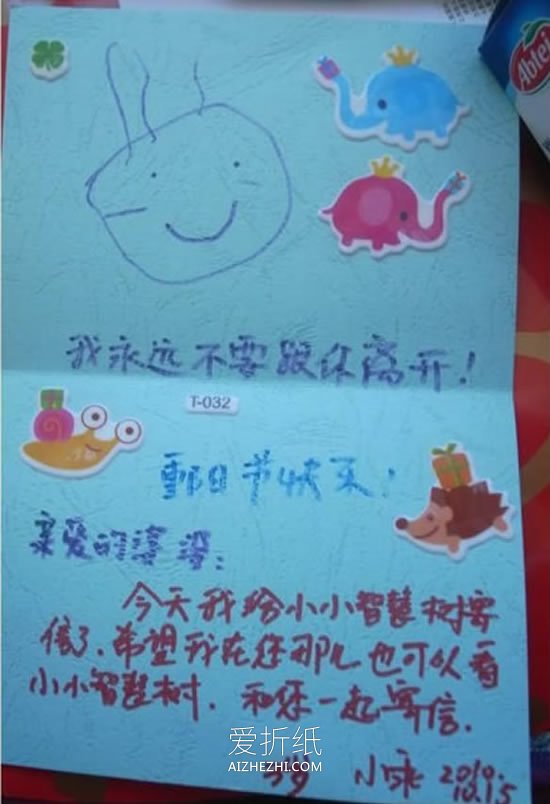 Abtei
我永远不要跟你离开!
T-032
重阳节快乐!
亲爱的婆婆:
今天我给小小智慧树寄
信了、希望我在您那儿也可以看
小小智慧树. 和您一起寄信.
爱折纸
AIZHEZHI.COM
2010.
10.15